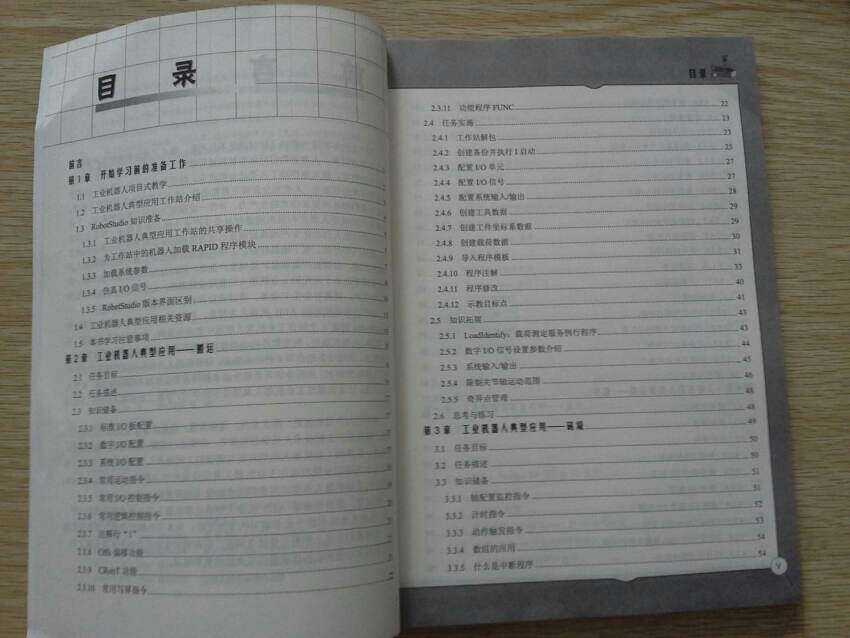 目 录
前言
第1章 开始学习前的准备工作
1.1 工业机器人项目式教学
1.2 工业机器人典型应用工作站介绍
1.3 RobotStudio 知识准备
1.3.1 工业机器人典型应用工作站的共享操作
1.3.2 为工作站中的机器人加载 RAPID 程序模块
1.3.3 加载系统参数
1.3.4 仿真 I/O 信号
1.3.5 RobotStudio 版本界面区别
1.4 工业机器人典型应用相关资源
1.5 本书学习注意事项
第2章 工业机器人典型应用——搬运
2.1 任务目标
2.2 任务描述
2.3 知识储备
2.3.1 标准 I/O 板配置
2.3.2 数字 I/O 配置
2.3.3 系统 I/O 配置
2.3.4 常用运动指令
2.3.5 常用 I/O 控制指令
2.3.6 常用逻辑控制指令
2.3.7 注释行“!”
2.3.8 Offs 偏移功能
2.3.9 CRobT 功能
2.3.10 常用写屏指令
目录
2.3.11 功能程序 FUNC 22
2.4 任务实施 23
2.4.1 工作站解包 23
2.4.2 创建备份并执行 I 启动 25
2.4.3 配置 I/O 单元 27
2.4.4 配置 I/O 信号 27
2.4.5 配置系统输入/输出 28
2.4.6 创建工具数据 29
2.4.7 创建工件坐标系数据 29
2.4.8 创建载荷数据 30
2.4.9 导入程序模板 31
2.4.10 程序注解 33
2.4.11 程序修改 40
2.4.12 示教目标点 41
2.5 知识拓展 43
2.5.1 LoadIdentify：载荷测定服务例行程序 43
2.5.2 数字 I/O 信号设置参数介绍 44
2.5.3 系统输入/输出 45
2.5.4 限制关节轴运动范围 46
2.5.5 奇异点管理 48
2.6 思考与练习 48
第3章 工业机器人典型应用——码垛 49
3.1 任务目标 50
3.2 任务描述 50
3.3 知识储备 51
3.3.1 轴配置监控指令 51
3.3.2 计时指令 52
3.3.3 动作触发指令 53
3.3.4 数组的应用 54
3.3.5 什么是中断程序 54
V